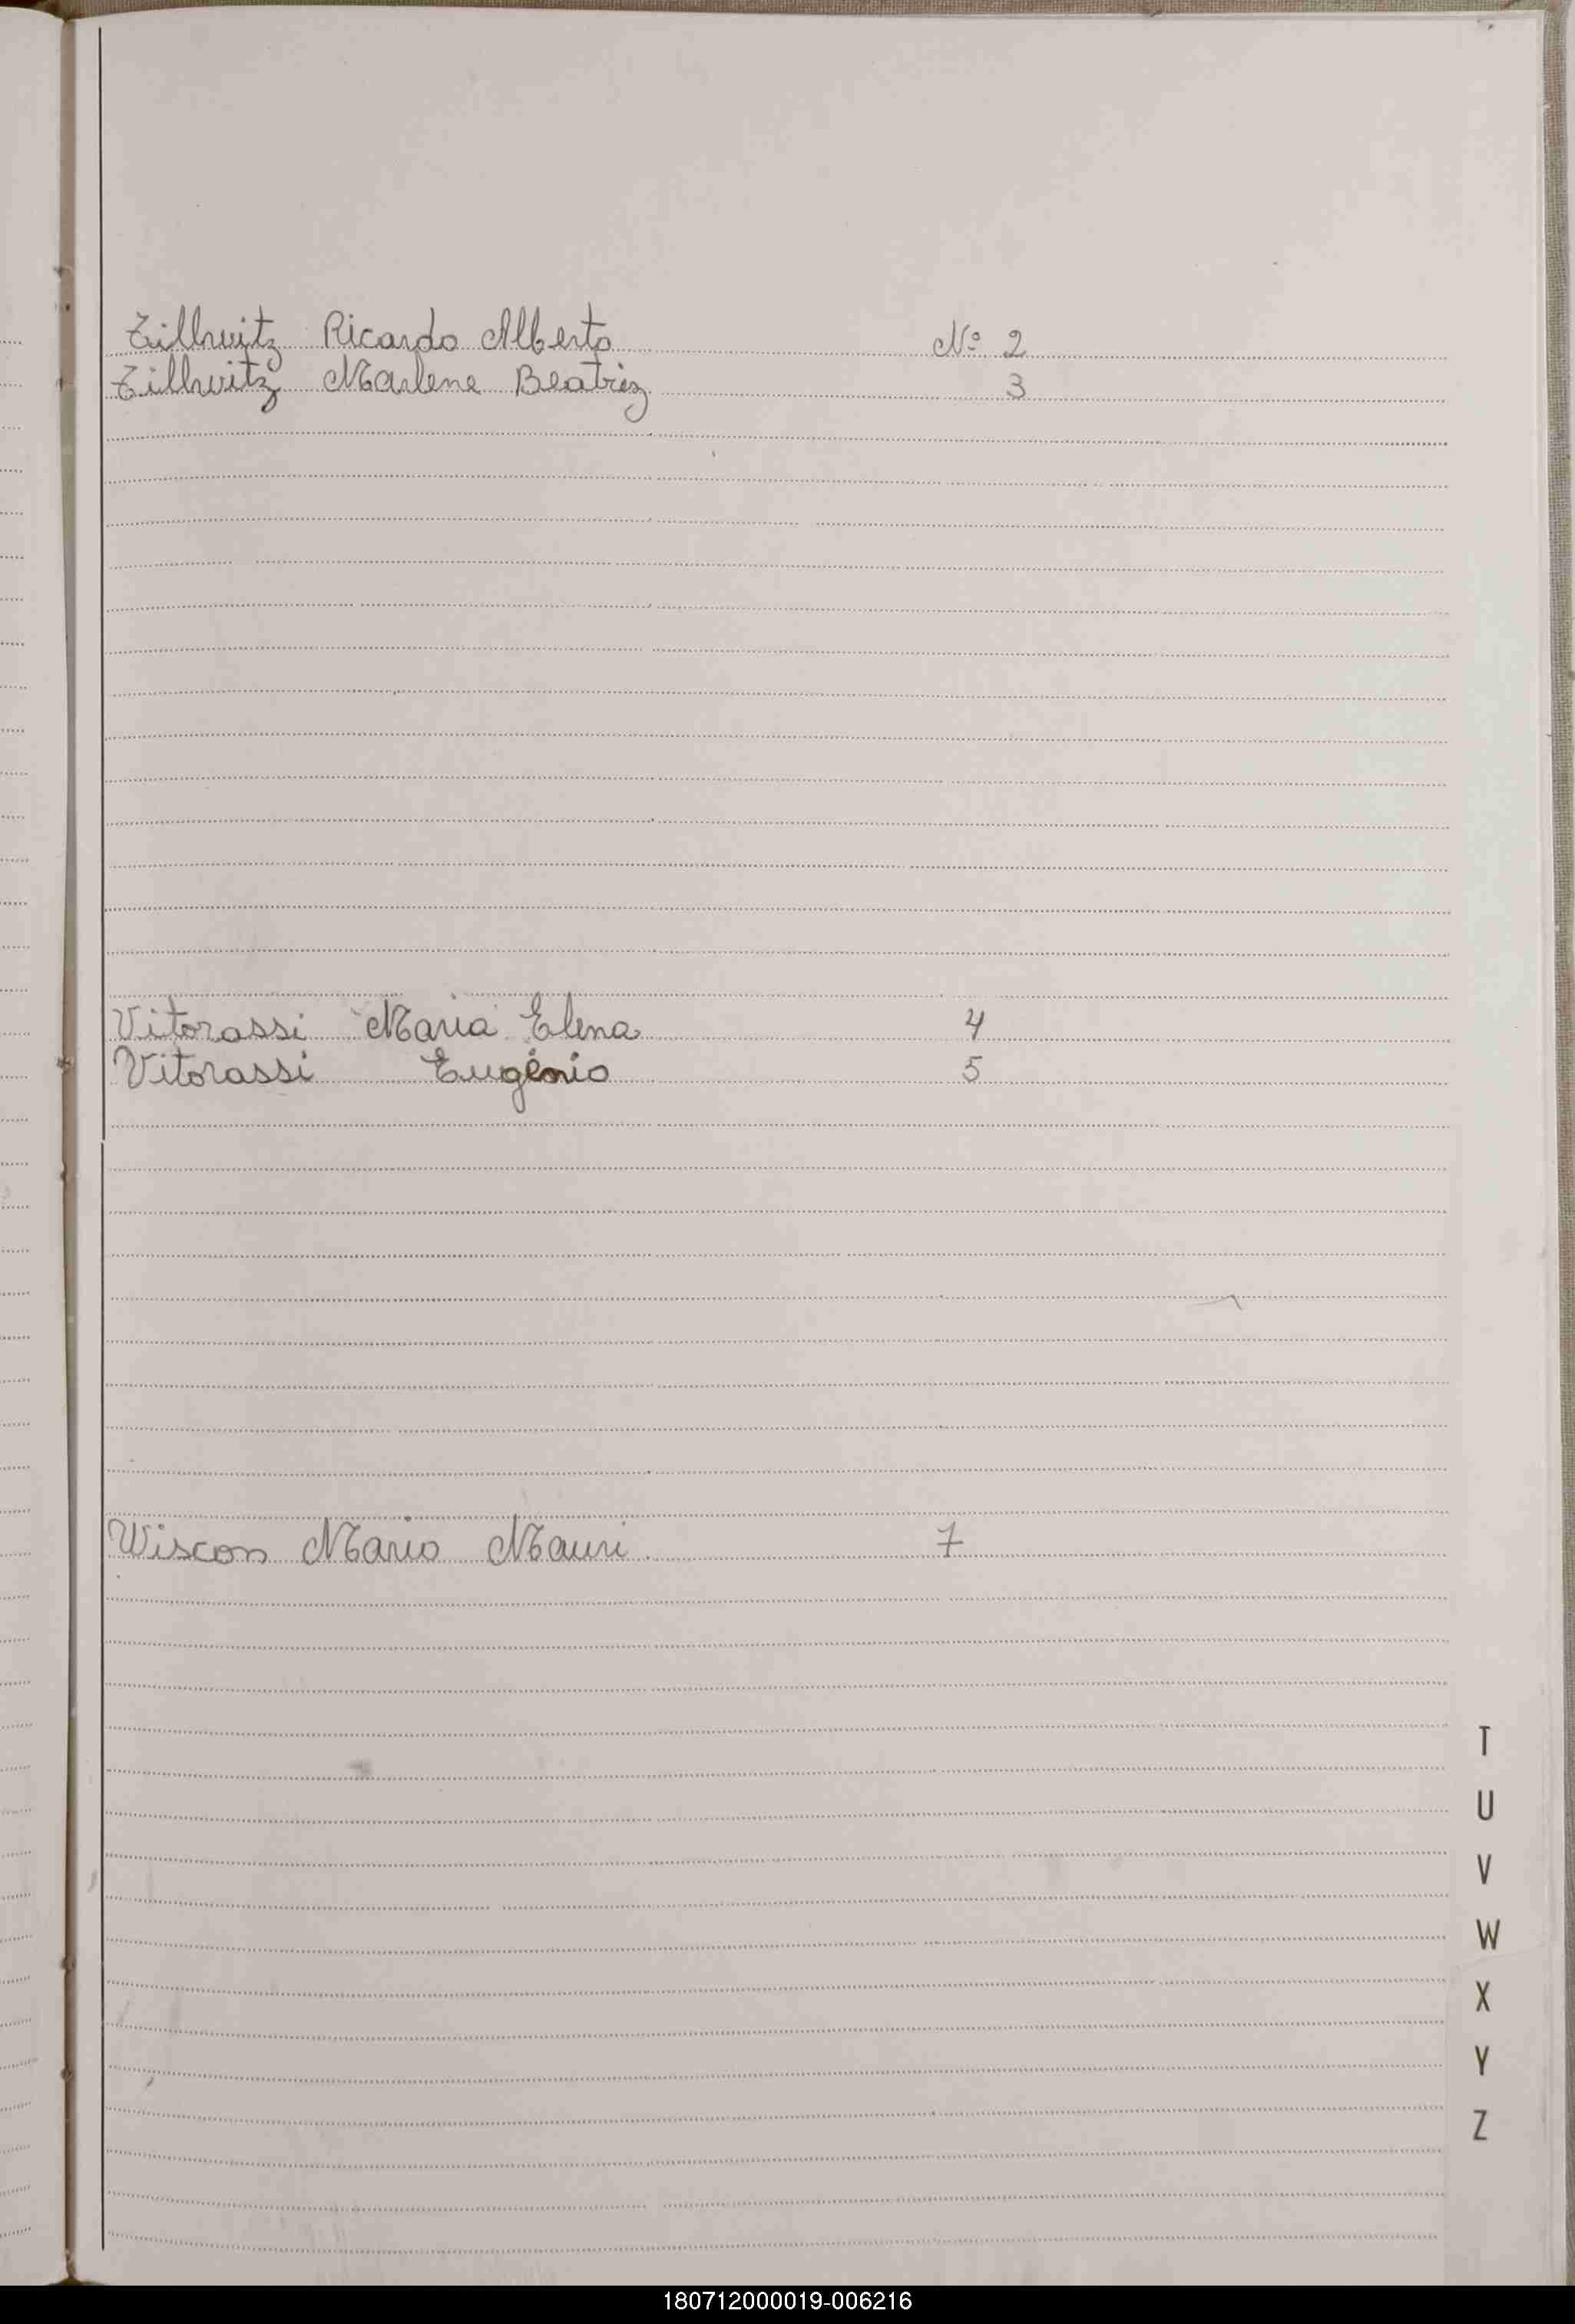 Zillwitz Ricardo Alberto Nº 2
Zillwitz Marlene Beatriz 3
Vitorassi Maria Elena 4
Vitorassi Eugênio 5
Wiscon Mario Mauri 7
T
U
V
W
X
Y
Z
180712000019-006216